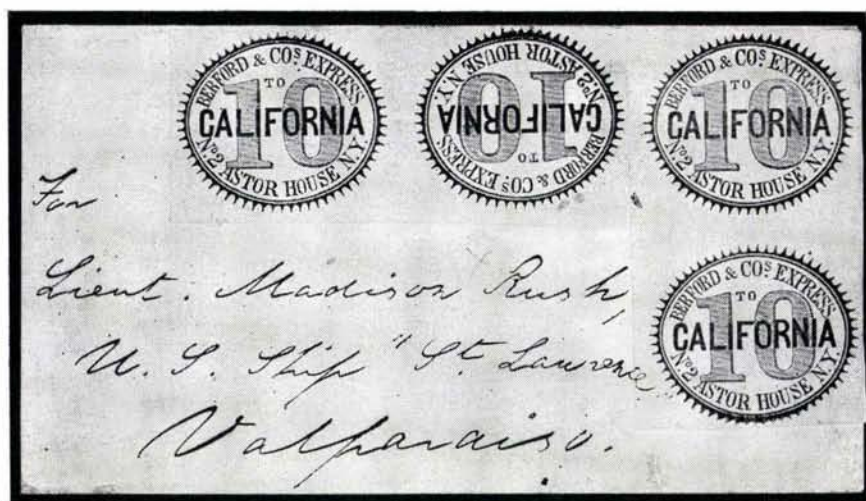 BERFORD & COS EXPRESS
TO
10
CALIFORNIA
No 2 ASTOR HOUSE N.Y.
BERFORD & COS EXPRESS
TO
10
CALIFORNIA
No 2 ASTOR HOUSE N.Y.
BERFORD & COS EXPRESS
TO
10
CALIFORNIA
No 2 ASTOR HOUSE N.Y.
For
Lieut. Madison Rush,
BERFORD & COS EXPRESS
TO
10
CALIFORNIA
No 2 ASTOR HOUSE N.Y.
U. S. Ship "St Lawrence"
Valparaiso.